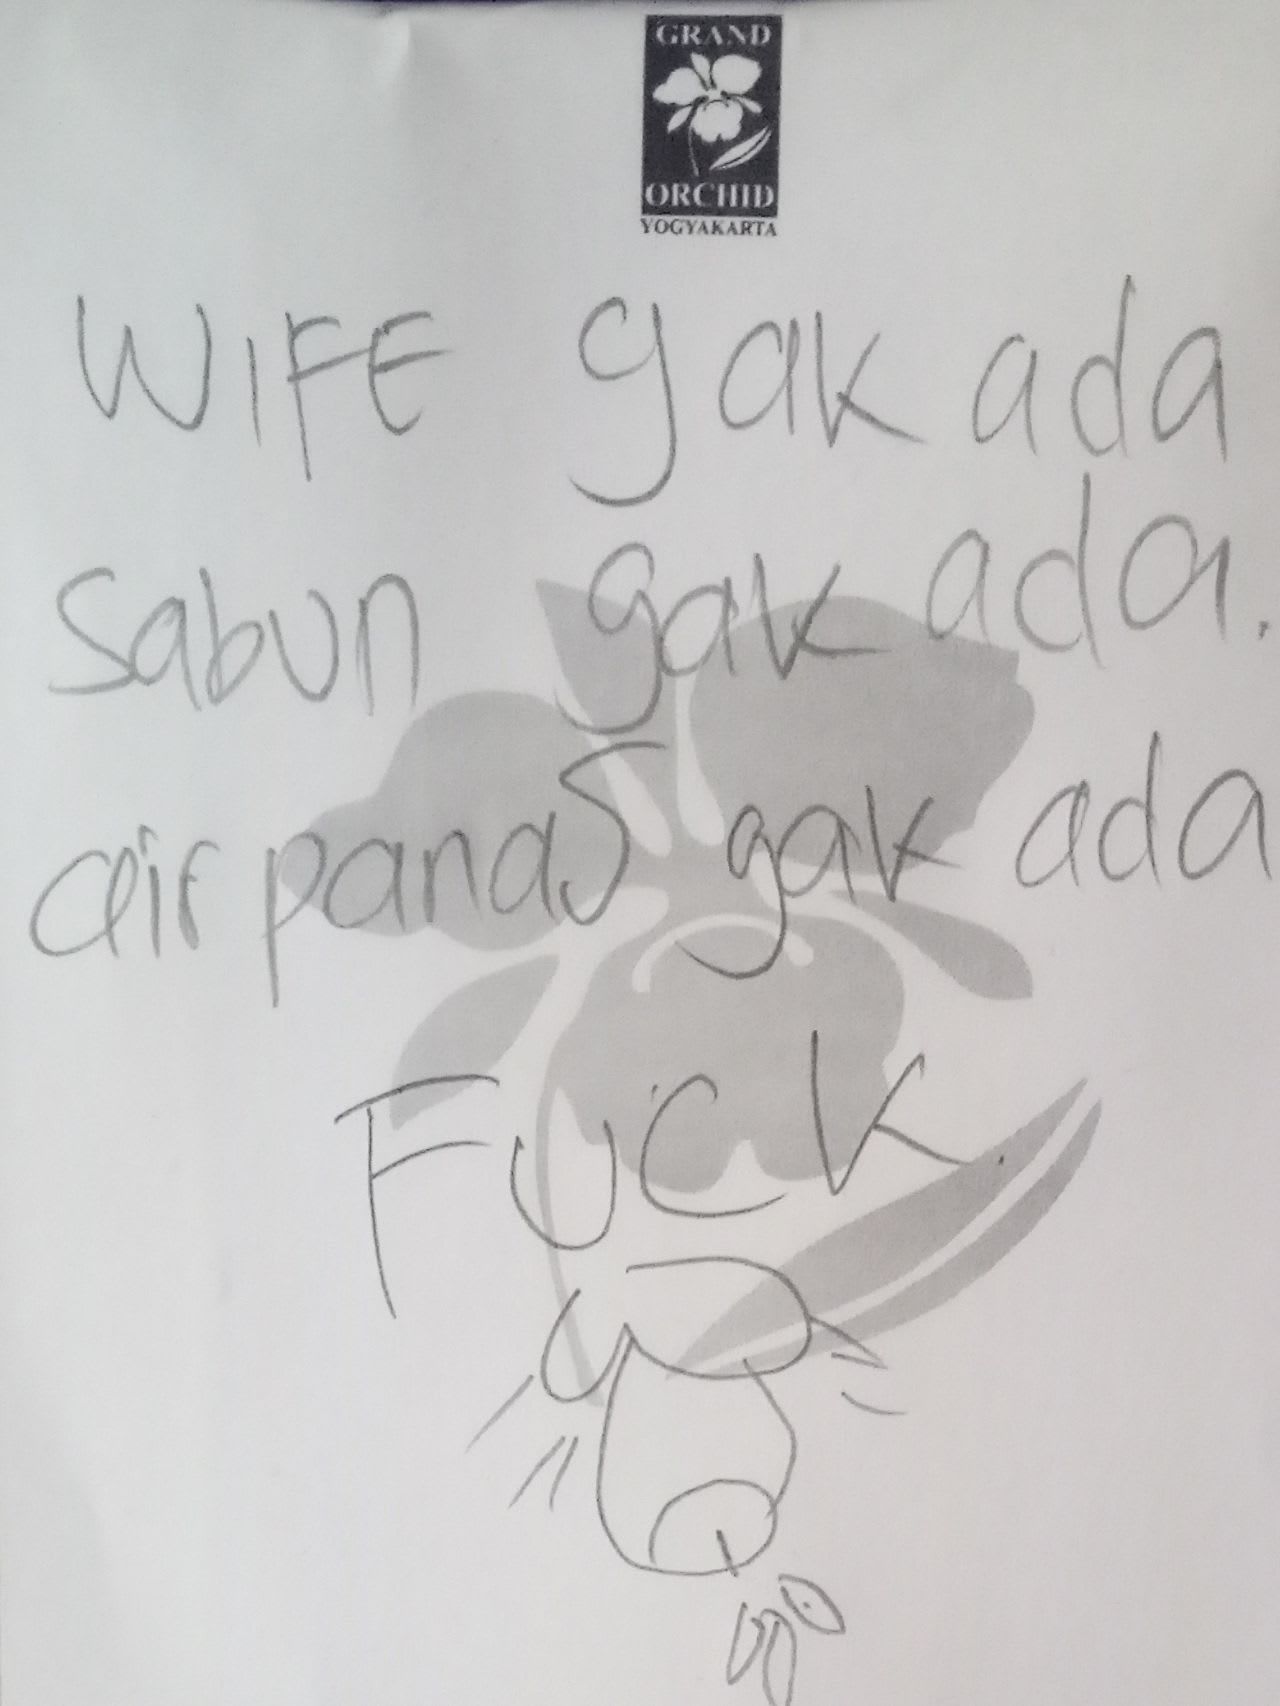 GRAND
ORCHID
YOGYAKARTA
WIFE gak ada
Sabun gak ada.
air panas gak ada
FUCK.